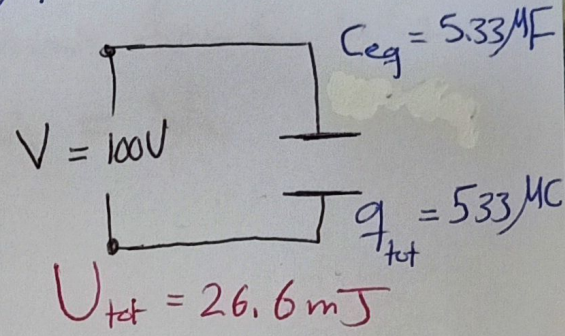 Ceq = 5.33 μF
V = 100V
qtot = 533 μC
Utot = 26.6 mJ